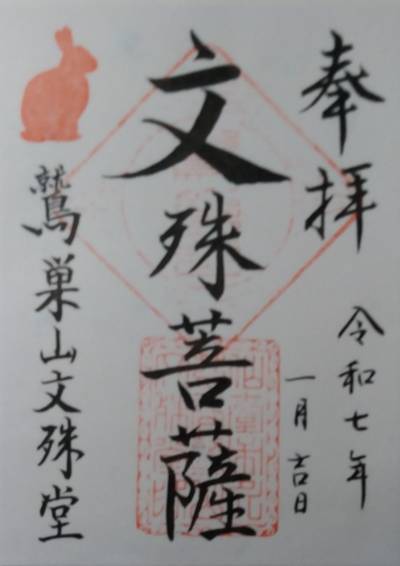 奉拝
令和七年
一月吉日
文殊菩薩
鷲巣山文殊堂